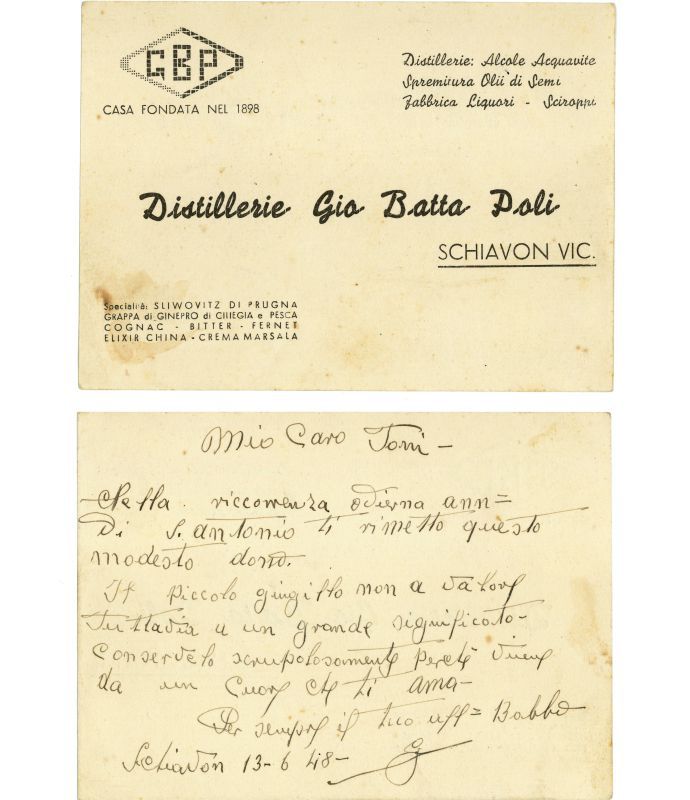 GBP
CASA FONDATA NEL 1898
Distillerie: Alcole Acquavite
Spremitura Olii di Semi
Fabbrica Liquori - Sciroppi
Distillerie Gio Batta Poli
SCHIAVON VIC.
Specialità: SLIWOVITZ DI PRUGNA
GRAPPA di GINEPRO di CILIEGIA e PESCA
COGNAC - BITTER - FERNET
ELIXIR CHINA - CREMA MARSALA
Mio Caro Toni -
Nella riccorrenza odierna ann=
Di S. Antonio ti rimetto questo
modesto dono.
Il piccolo gingillo non a valore
Tuttavia a un grande significato-
Conservelo scrupolosamente perchè viene
da un Cuore che ti ama-
Per sempre il tuo aff= Babbo
Schiavon 13-6 48-
G